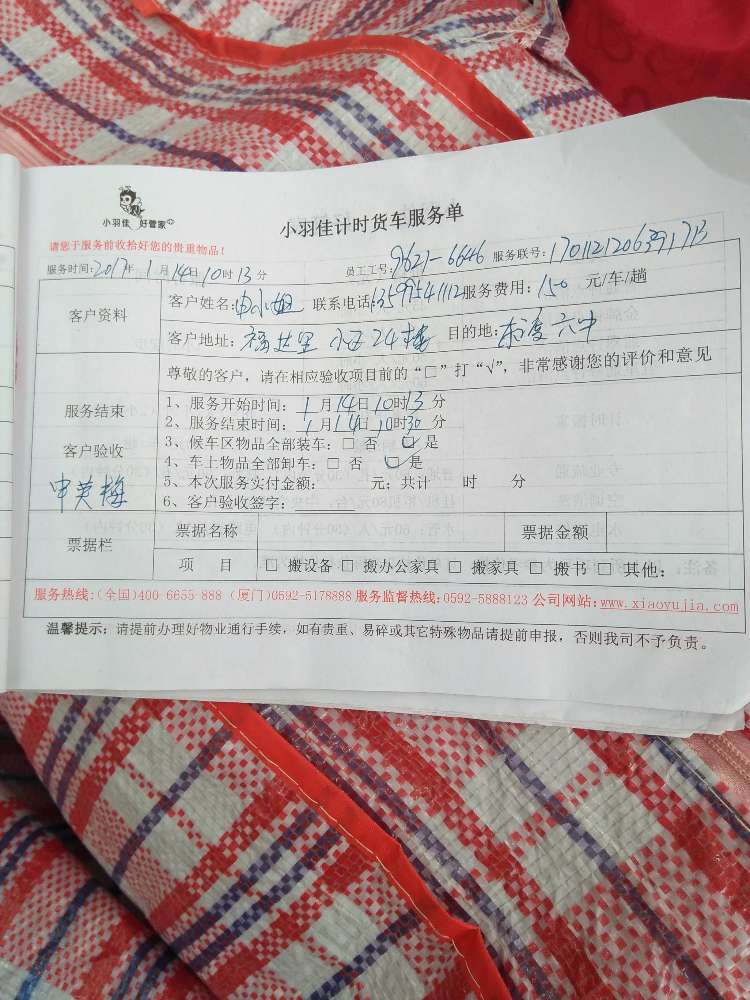 小羽佳 好管家
小羽佳计时货车服务单
请您于服务前收拾好您的贵重物品！
服务时间：2017年1月14日10时13分 员工工号：9621-6646 服务联号：1701121206391713
客户资料
客户姓名：申小姐 联系电话：13599541112 服务费用：150 元/车/趟
客户地址：福达里小区24楼 目的地：东渡六中
尊敬的客户，请在相应验收项目前的“□”打“√”，非常感谢您的评价和意见
服务结束
客户验收
申英梅
1、服务开始时间：1月14日10时13分
2、服务结束时间：1月14日10时30分
3、候车区物品全部装车：□ 否 ☑ 是
4、车上物品全部卸车：□ 否 ☑ 是
5、本次服务实付金额： 元；共计 时 分
6、客户验收签字：
票据栏
票据名称 票据金额
项 目 □ 搬设备 □ 搬办公家具 □ 搬家具 □ 搬书 □ 其他：
服务热线：(全国)400-6655-888 (厦门)0592-5178888 服务监督热线：0592-5888123 公司网站：www.xiaoyujia.com
温馨提示：请提前办理好物业通行手续，如有贵重、易碎或其它特殊物品请提前申报，否则我司不予负责。